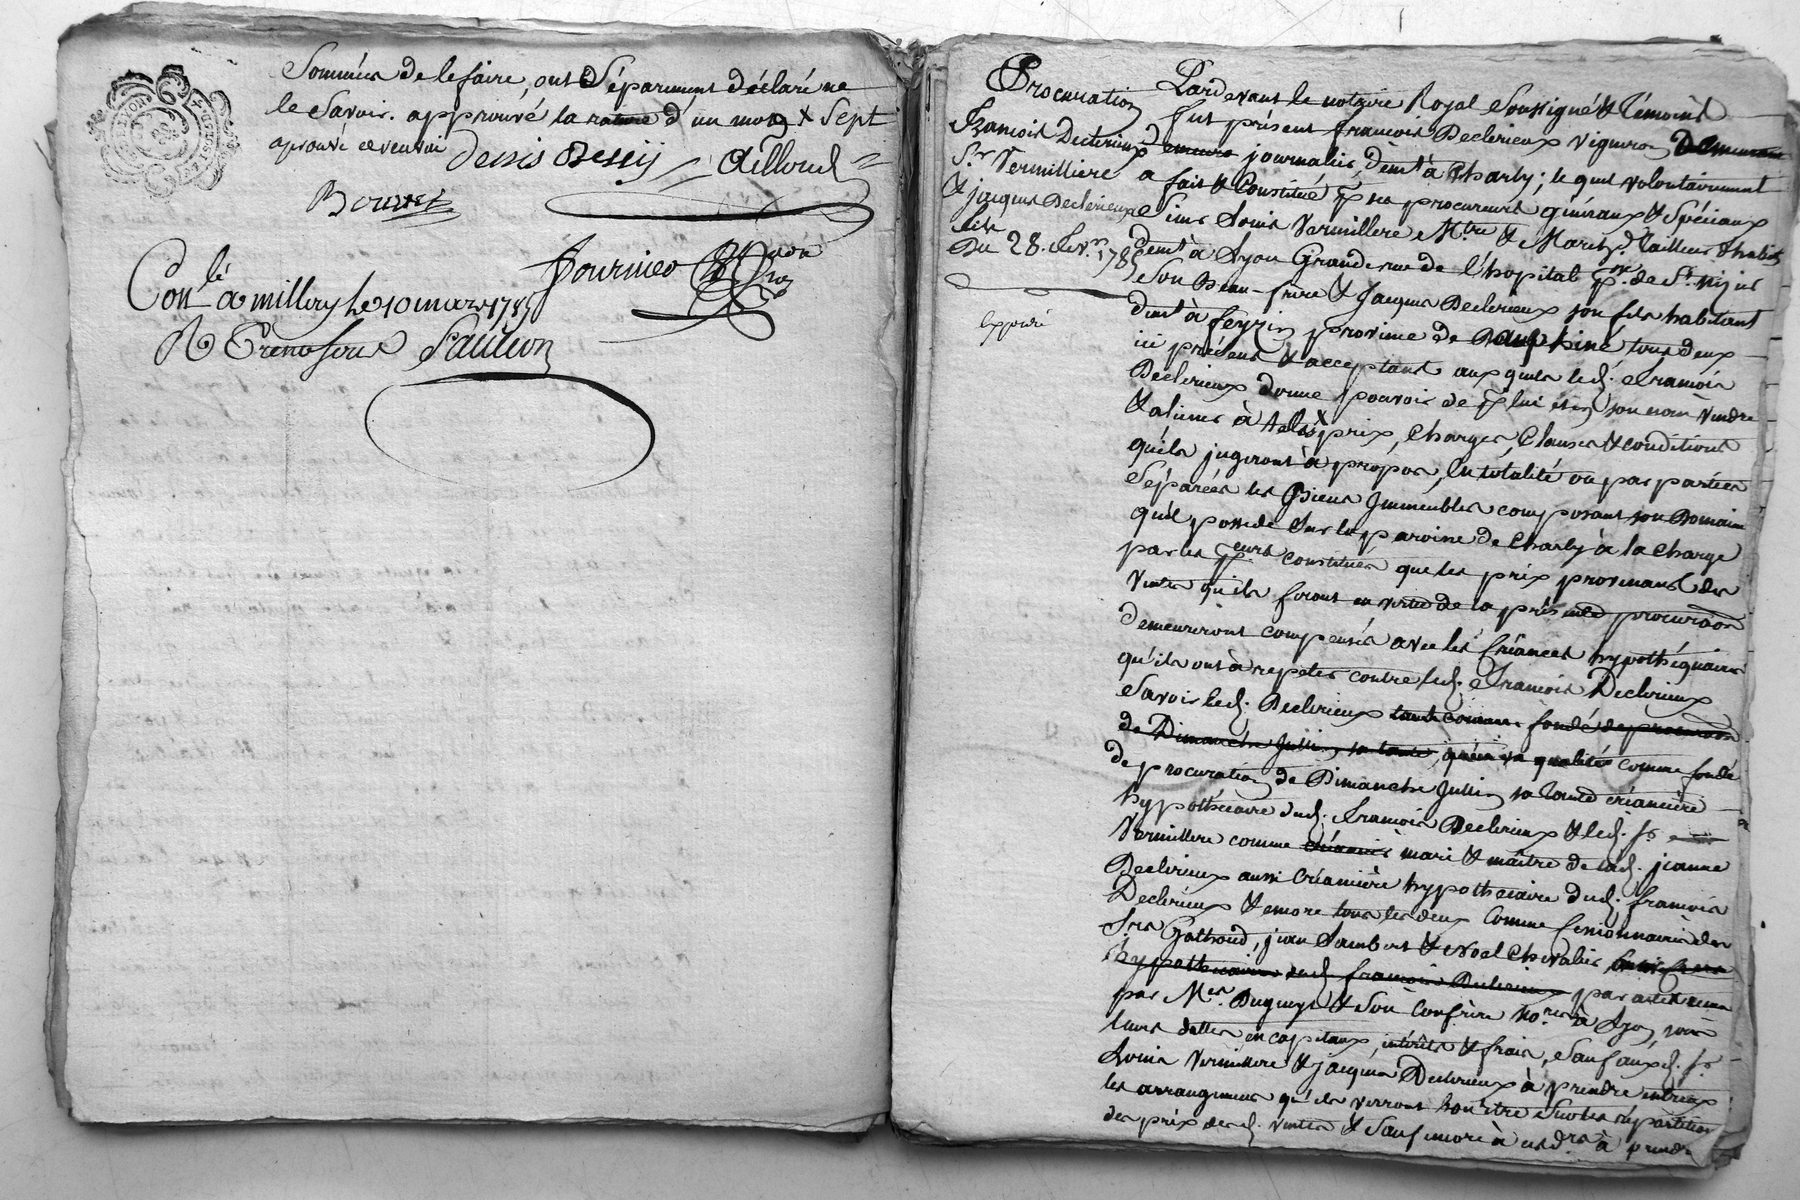 Sommés de le faire, ont Séparément déclaré ne
le Savoir. approuvé la rature d'un mot & Sept
aprouvé
Dessis Dessij Ailloud
Bourret
Fournier
Conlé a millery le 10 mars 1785
R
Sauleon
Procuration
François Declerieux
Sr Vermilliere
& jacques Declerieux
fils
Du 28. fevr. 1785
Expedié
Pardevant le notaire Royal Soussigné & témoins
fut présent françois Declerieux vigneron Demeurant
demeura journalier, demt à Charly; lequel volontairement
a fait & Constitué pr ses procureurs généraux & Spéciaux
Sieur Louis Vermillere Mtre & March. Tailleur d'habits
demt à Lyon Grande rue de l'hopital psse de St. nizier
Son Beau-frere & Jacques Declerieux son fils habitant
demt à feyzin province de Dauphiné tous deux
ici présens & acceptans auxquels led. françois
Declerieux donne pouvoir de pr lui & en son nom vendre
& aliener à tels prix, Charges, Clauses & conditions
qu'ils jugeront à propos, en totalité ou par parties
Séparées les Biens Immeubles composant son Domaine
qu'il possede Sur la paroisse de Charly à la charge
par les preurs constitués que les prix provenant des
Ventes qu'ils feront en vertu de la présente procuraon
demeureront compensés avec les Créances hypothéquaires
qu'ils ont à repeter contre led. françois Declerieux
Savoir led. Declerieux tant comme fondé de procuraon
de Dimanche Jullin sa tante, qu'en sa qualité comme fondé
de procuration de Dimanche Jullin sa tante créancière
hypothécaire dud. françois Declerieux & led. Sr.
Vermillere comme créancier mari & maître de lad. jeanne
Declerieux aussi Créancière hypothecaire dud. françois
Declerieux & encore tous les deux Comme Cessionnaires des
Srs Gathoud, jean Lambert & Noel Chevalier
hypothecaires dud. françois Declerieux par actes recus
par Mes. Dugueyt & Son Confrère nores à Lyon, pour
leurs dettes en capitaux, intérêts & frais, Sauf auxd. Sr.
Louis Vermillere & jacques Declerieux à prendre entreux
les arrangemens qu'ils verront bon être Sur la répartition
des prix desd. ventes & Sauf encore à à prendre